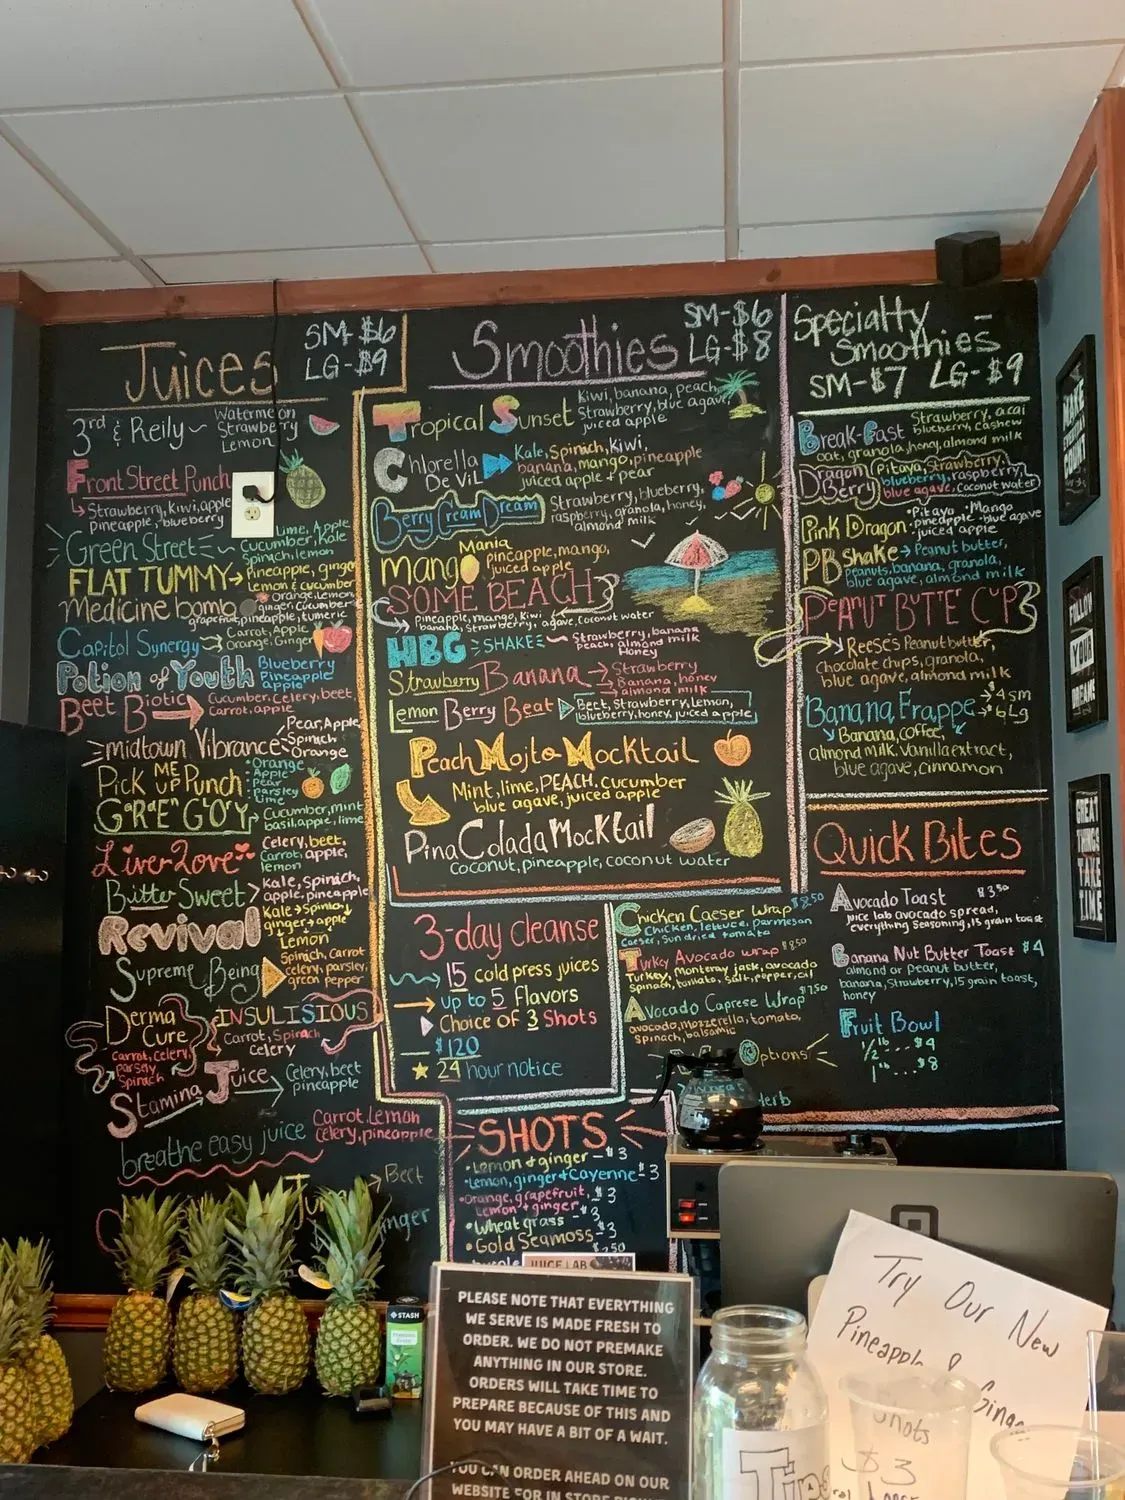 Juices
SM-$6
LG-$9
3rd & Reily ~
Watermelon
Strawberry
Lemon
Front Street Punch
Strawberry, Kiwi, apple
pineapple, blueberry
Green Street
Lime, Apple
Cucumber, Kale
Spinach, lemon
FLAT TUMMY
Pineapple, ginger
Lemon & cucumber
Medicine bomb
Orange, Lemon,
ginger, cucumber
grapefruit, pineapple, tumeric
Capitol Synergy
Carrot, Apple
Orange, Ginger
Potion of Youth
Blueberry
Pineapple
apple
Beet Biotic
Cucumber, Celery, beet,
Carrot, apple
midtown Vibrance
Pear, Apple,
Spinach
Orange
Pick ME UP Punch
Orange
Apple
pear
parsley
Lime
GREGORY
Cucumber, mint
basil, apple, lime
Liver Love
Celery, beet,
Carrot, apple,
lemon
Bitter Sweet
Kale, Spinach,
apple, pineapple
Revival
Kale, Spinach,
ginger + apple
Lemon
Supreme Being
Spinach, Carrot
celery, parsley,
green pepper
Derma
Cure
Carrot, celery,
parsley,
Spinach
INSULISIOUS
Carrot, Spinach
celery
Stamina Juice
Celery, beet
pineapple
breathe easy juice
Carrot, Lemon
Celery, pineapple
Beet
Smoothies
SM-$6
LG-$8
Tropical Sunset
Kiwi, banana, peach,
Strawberry, blue agave,
juiced apple
Chlorella
De Vil
Kale, Spinich, Kiwi,
banana, mango, pineapple
juiced apple + pear
Berry Cream Dream
Strawberry, blueberry,
raspberry, granola, honey,
almond milk
Mango Mania
pineapple, mango,
juiced apple
SOME BEACH
Pineapple, mango, Kiwi
banana, strawberry, agave, coconut water
HBG SHAKE
Strawberry, banana
Peach, almond milk
Honey
Strawberry Banana
Strawberry
Banana, honey
almond milk
Lemon Berry Beat
Beet, Strawberry, Lemon,
blueberry, honey, juiced apple
Peach Mojito Mocktail
Mint, lime, PEACH, cucumber
blue agave, juiced apple
Pina Colada Mocktail
coconut, pineapple, coconut water
Specialty
Smoothies
SM-$7 LG-$9
Break-Fast
Strawberry, acai
blueberry, cashew
oat, granola, honey, almond milk
Dragon
Berry
Pitaya, Strawberry,
blueberry, raspberry
blue agave, coconut water
Pink Dragon
•Pitaya •Mango
•pineapple •blue agave
•juiced apple
PB Shake
Peanut butter,
Peanuts, banana, granola,
blue agave, almond milk
PEANUT BUTTER CUP
Reese's Peanut butter,
chocolate chips, granola,
blue agave, almond milk
Banana Frappe
$4 sm
$6 Lg
Banana, coffee,
almond milk, vanilla extract,
blue agave, cinnamon
3-day cleanse
15 cold press juices
up to 5 flavors
Choice of 3 Shots
$120
24 hour notice
SHOTS
•Lemon + ginger - $3
•Lemon, ginger + Cayenne - $3
•Orange, grapefruit, $3
Lemon + ginger
•Wheat grass - $3
•Gold Seamoss - $3
$2.50
Quick Bites
Chicken Caeser Wrap $8.50
Chicken, lettuce, parmesan
Caeser, sun dried tomato
Turkey Avocado Wrap $8.50
Turkey, Monterey jack, avocado
Spinach, tomato, salt, pepper, oil
Avocado Caprese Wrap $7.50
avocado, mozzerella, tomato,
spinach, balsamic
Options
Avocado Toast $3.50
juice lab avocado spread,
everything seasoning, 15 grain toast
Banana Nut Butter Toast $4
almond or peanut butter,
banana, strawberry, 15 grain toast,
honey
Fruit Bowl
1/2 lb ... $4
1 lb ... $8
MAKE
EVERYDAY
COUNT
FOLLOW
YOUR
DREAMS
GREAT
THINGS
TAKE
TIME
STASH
JUICE LAB
PLEASE NOTE THAT EVERYTHING
WE SERVE IS MADE FRESH TO
ORDER. WE DO NOT PREMAKE
ANYTHING IN OUR STORE.
ORDERS WILL TAKE TIME TO
PREPARE BECAUSE OF THIS AND
YOU MAY HAVE A BIT OF A WAIT.
YOU CAN ORDER AHEAD ON OUR
WEBSITE FOR IN STORE
Try Our New
Pineapple
Shots
$3
Tips